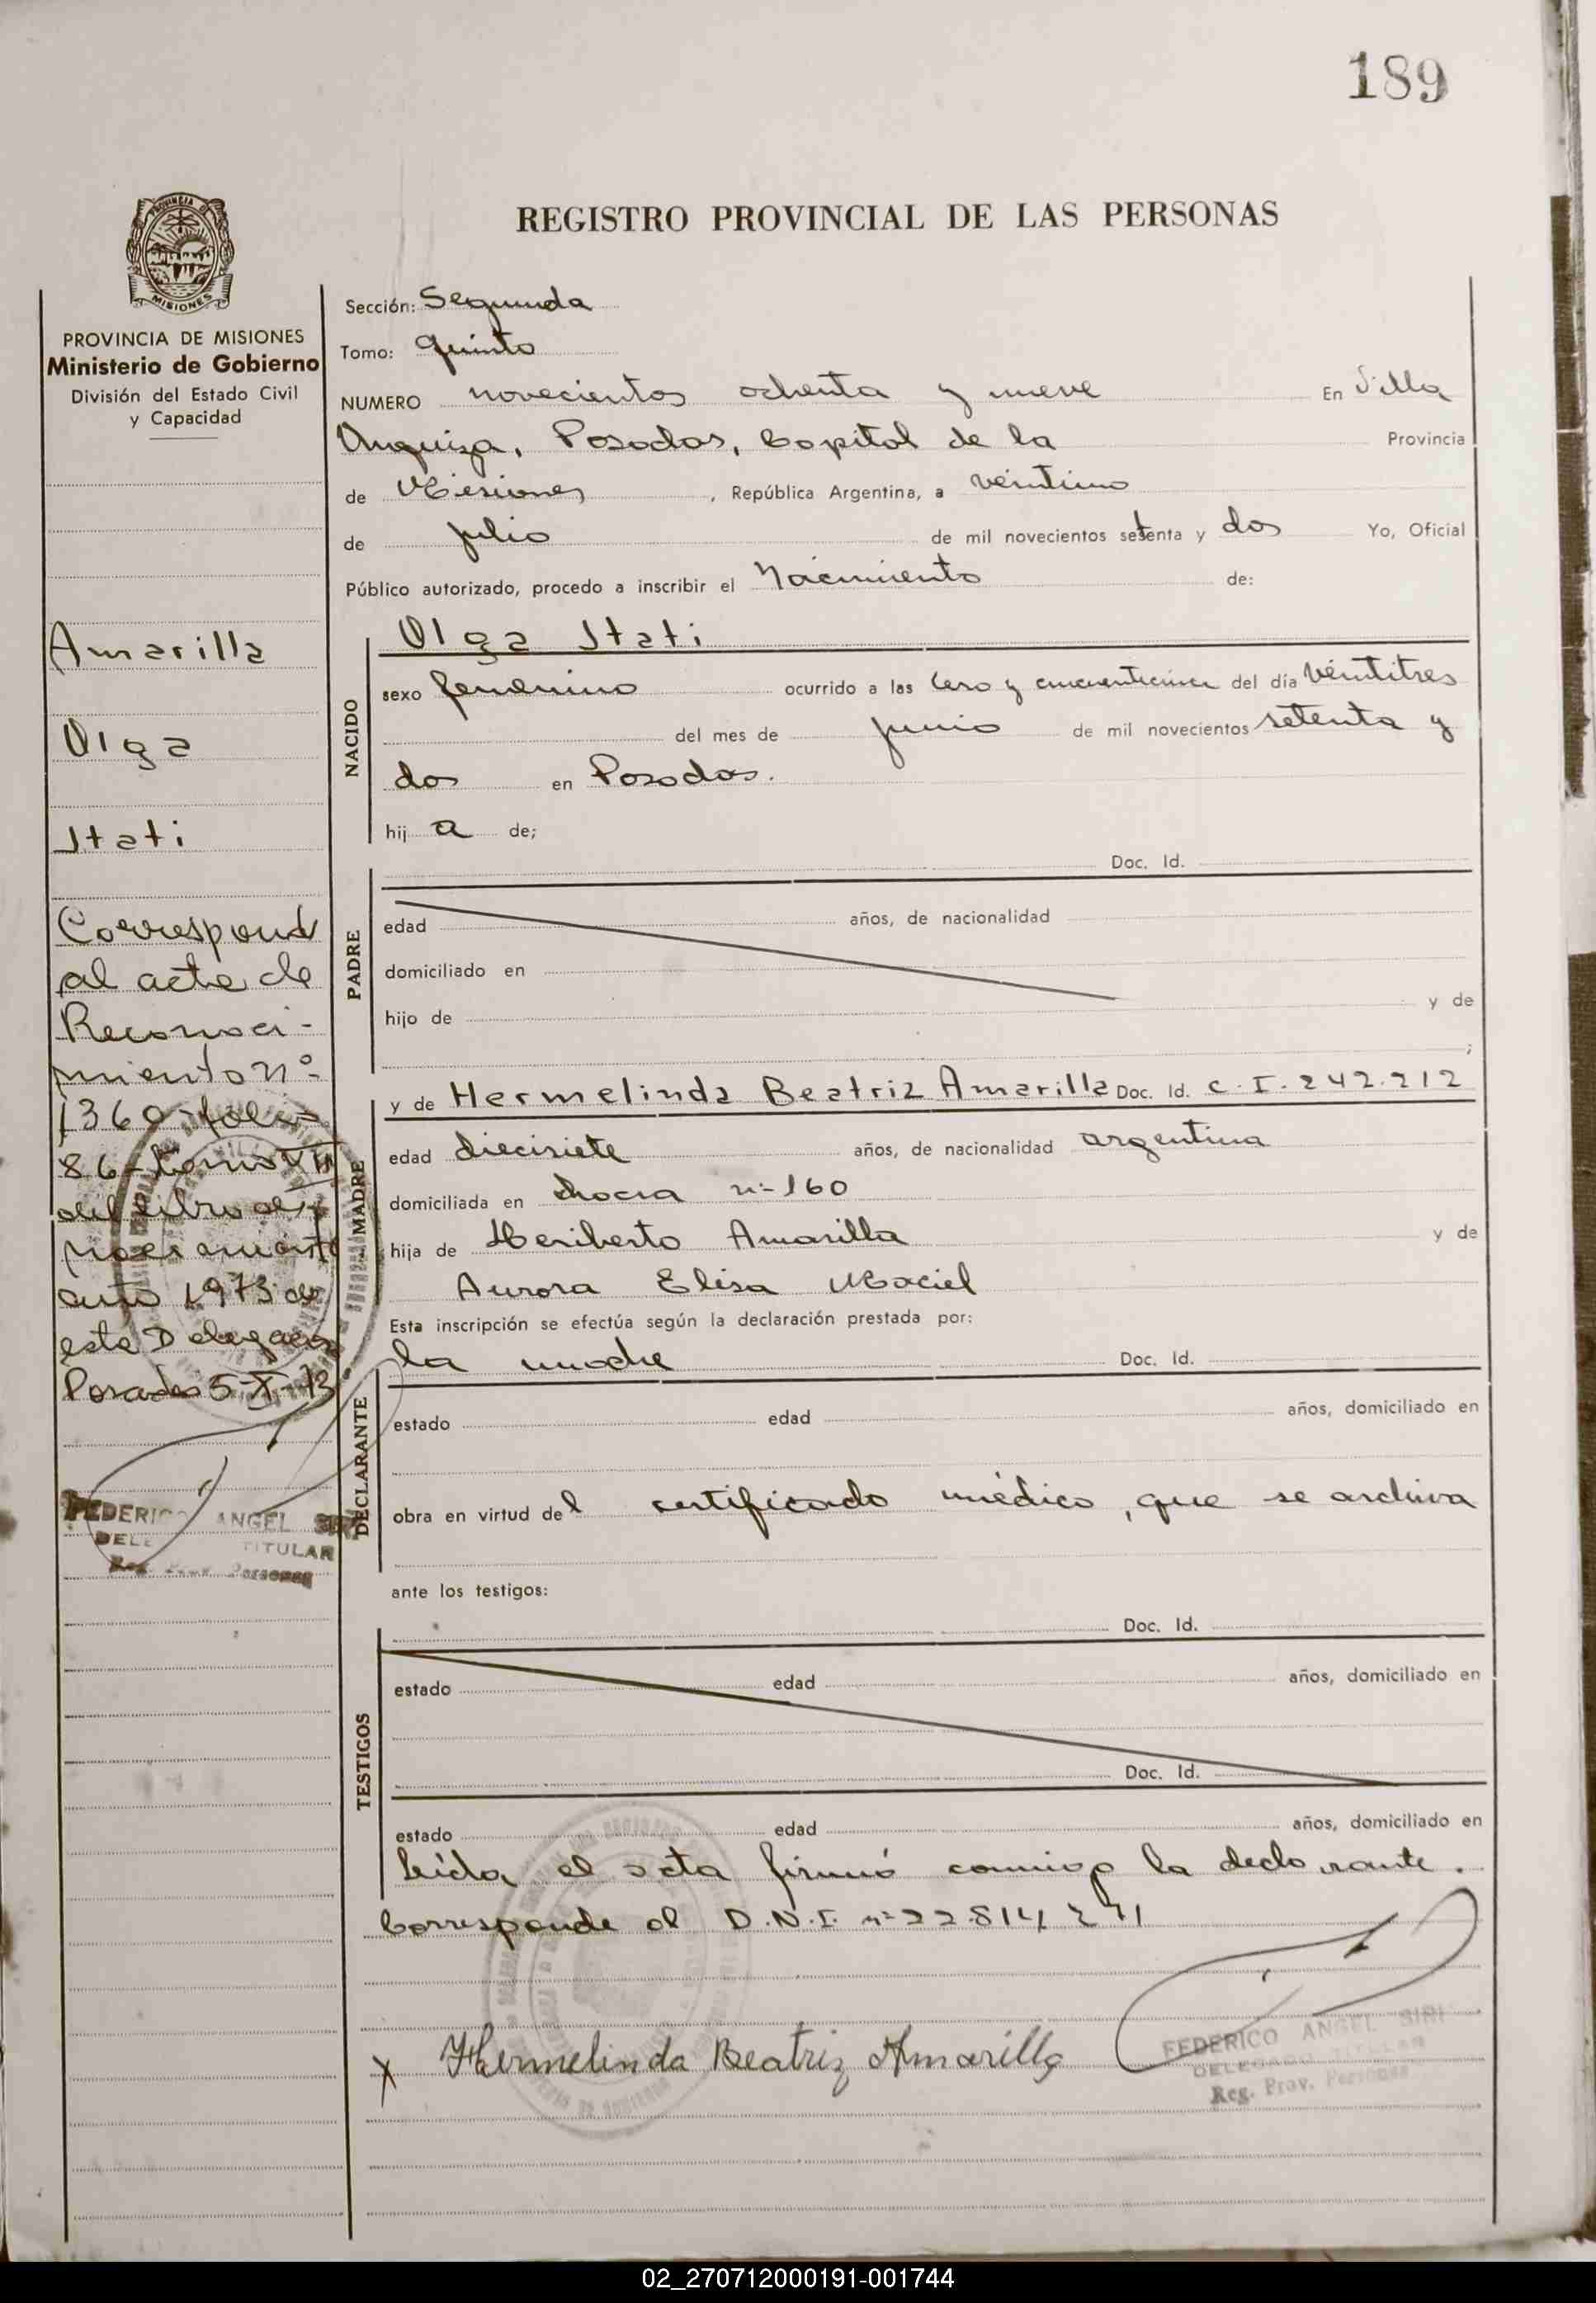 189
REGISTRO PROVINCIAL DE LAS PERSONAS
MISIONES
PROVINCIA DE MISIONES
Ministerio de Gobierno
División del Estado Civil
y Capacidad
Amarilla
Olga
Itati
Correspond
al acta de
Reconoci-
miento nº
1360 folio
86 tomo XII
del libro de
año 1973 de
esta Delegacion
Posadas 5-X-73
FEDERICO ANGEL SIRI
TITULAR
Reg. Prov. Personas
Sección: Segunda
Tomo: Quinto
NUMERO novecientos ochenta y nueve En Villa
Urquiza, Posadas, Capital de la Provincia
de Misiones, República Argentina, a veintiuno
de julio de mil novecientos setenta y dos Yo, Oficial
Público autorizado, procedo a inscribir el Nacimiento de:
NACIDO
Olga Itati
sexo femenino ocurrido a las cero y cincuenticinco del día veintitres
del mes de junio de mil novecientos setenta y
dos en Posadas.
hij a de;
PADRE
Doc. Id.
edad años, de nacionalidad
domiciliado en
hijo de y de
;
MADRE
y de Hermelinda Beatriz Amarilla Doc. Id. C.I. 242.212
edad diecisiete años, de nacionalidad argentina
domiciliada en Chacra nº 160
hija de Heriberto Amarilla y de
Aurora Elisa Maciel
Esta inscripción se efectúa según la declaración prestada por:
DECLARANTE
la madre Doc. Id.
estado edad años, domiciliado en
obra en virtud del certificado médico, que se archiva
ante los testigos:
TESTIGOS
Doc. Id.
estado edad años, domiciliado en
Doc. Id.
estado edad años, domiciliado en
Leída el acta firmó conmigo la declarante.
Corresponde al D.N.I. nº 22.814
Hermelinda Beatriz Amarilla
FEDERICO ANGEL SIRI
DELEGADO TITULAR
Reg. Prov. Personas
02_270712000191-001744